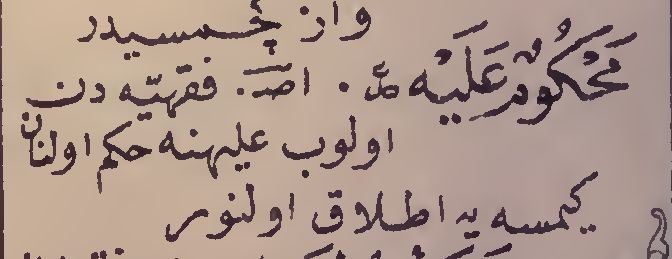 محكومٌ عَلَيْه اصـ. فقهيّه دن
اولوب عليهنه حكم اولنان
كيمسه يه اطلاق اولنور